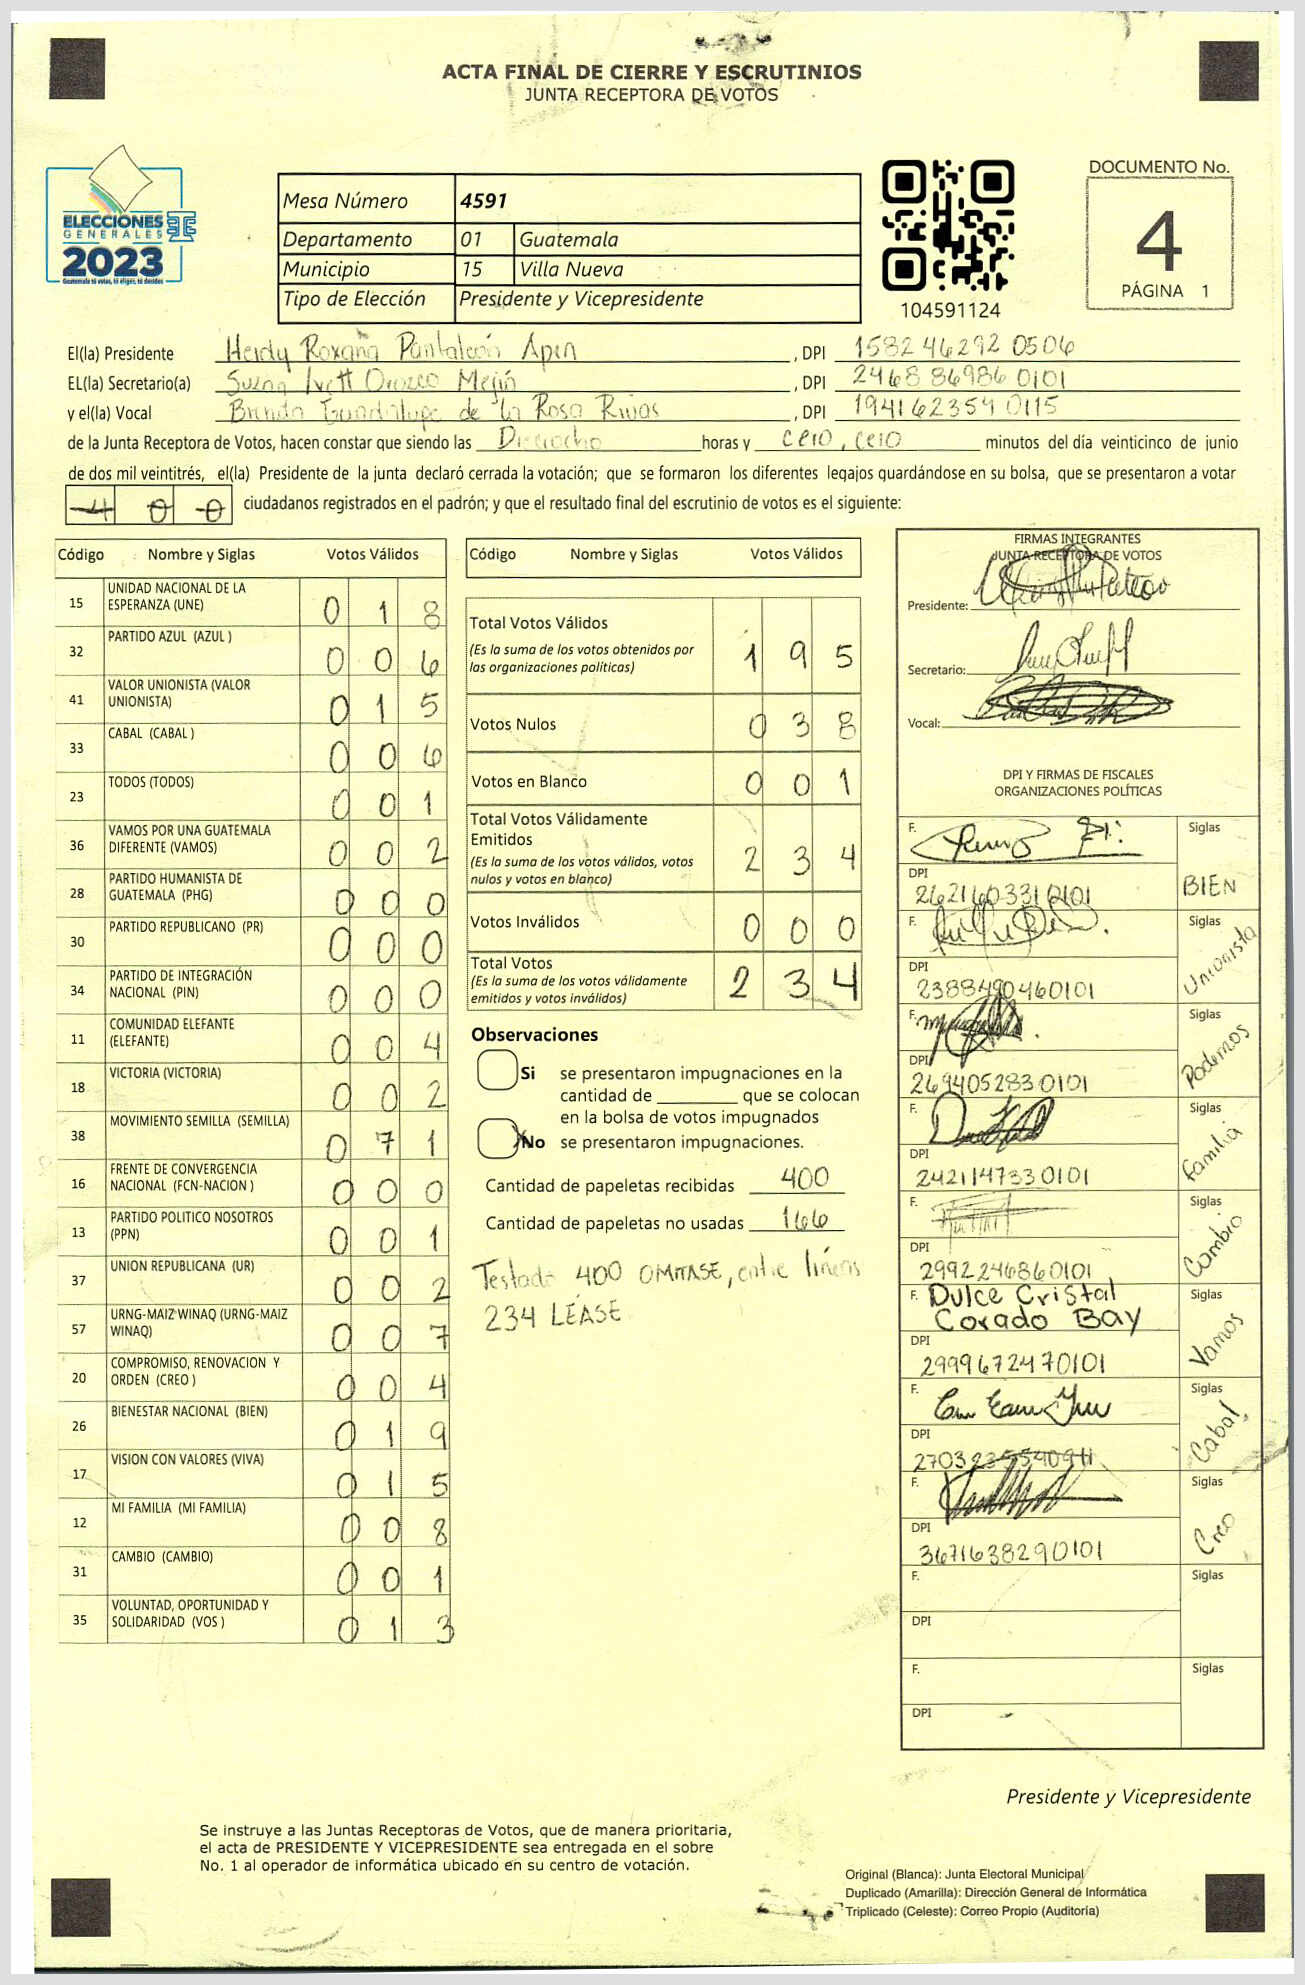 ACTA FINAL DE CIERRE Y ESCRUTINIOS
JUNTA RECEPTORA DE VOTOS
ELECCIONES
GENERALES
2023
Guatemala tú votas, tú eliges, tú decides
Mesa Número 4591
Departamento 01 Guatemala
Municipio 15 Villa Nueva
Tipo de Elección Presidente y Vicepresidente
104591124
DOCUMENTO No.
4
PÁGINA 1
El(la) Presidente Heidy Roxana Pantaleón Apen, DPI 1582 46292 0506
EL(la) Secretario(a) Ivett Orozco Mejía, DPI 2468 86986 0101
y el(la) Vocal Brenda Guadalupe de la Rosa Rivas, DPI 1941 62354 0115
de la Junta Receptora de Votos, hacen constar que siendo las Dieciocho horas y cero, cero minutos del día veinticinco de junio
de dos mil veintitrés, el(la) Presidente de la junta declaró cerrada la votación; que se formaron los diferentes legajos guardándose en su bolsa, que se presentaron a votar
400 ciudadanos registrados en el padrón; y que el resultado final del escrutinio de votos es el siguiente:
Código Nombre y Siglas Votos Válidos
15 UNIDAD NACIONAL DE LA ESPERANZA (UNE) 0 1 8
32 PARTIDO AZUL (AZUL ) 0 0 6
41 VALOR UNIONISTA (VALOR UNIONISTA) 0 1 5
33 CABAL (CABAL ) 0 0 6
23 TODOS (TODOS) 0 0 1
36 VAMOS POR UNA GUATEMALA DIFERENTE (VAMOS) 0 0 2
28 PARTIDO HUMANISTA DE GUATEMALA (PHG) 0 0 0
30 PARTIDO REPUBLICANO (PR) 0 0 0
34 PARTIDO DE INTEGRACIÓN NACIONAL (PIN) 0 0 0
11 COMUNIDAD ELEFANTE (ELEFANTE) 0 0 4
18 VICTORIA (VICTORIA) 0 0 2
38 MOVIMIENTO SEMILLA (SEMILLA) 0 7 1
16 FRENTE DE CONVERGENCIA NACIONAL (FCN-NACION ) 0 0 0
13 PARTIDO POLITICO NOSOTROS (PPN) 0 0 1
37 UNION REPUBLICANA (UR) 0 0 2
57 URNG-MAIZ WINAQ (URNG-MAIZ WINAQ) 0 0 7
20 COMPROMISO, RENOVACION Y ORDEN (CREO ) 0 0 4
26 BIENESTAR NACIONAL (BIEN) 0 1 9
17 VISION CON VALORES (VIVA) 0 1 5
12 MI FAMILIA (MI FAMILIA) 0 0 8
31 CAMBIO (CAMBIO) 0 0 1
35 VOLUNTAD, OPORTUNIDAD Y SOLIDARIDAD (VOS ) 0 1 3
Código Nombre y Siglas Votos Válidos
Total Votos Válidos 1 9 5
(Es la suma de los votos obtenidos por
las organizaciones políticas)
Votos Nulos 0 3 8
Votos en Blanco 0 0 1
Total Votos Válidamente
Emitidos 2 3 4
(Es la suma de los votos válidos, votos
nulos y votos en blanco)
Votos Inválidos 0 0 0
Total Votos 2 3 4
(Es la suma de los votos válidamente
emitidos y votos inválidos)
Observaciones
Si se presentaron impugnaciones en la
cantidad de ________ que se colocan
en la bolsa de votos impugnados
No se presentaron impugnaciones.
Cantidad de papeletas recibidas 400
Cantidad de papeletas no usadas 166
Testado 400 OMITASE, entre líneas
234 LÉASE
FIRMAS INTEGRANTES
JUNTA RECEPTORA DE VOTOS
Presidente:
Secretario:
Vocal:
DPI Y FIRMAS DE FISCALES
ORGANIZACIONES POLÍTICAS
F. Siglas
DPI 2621603310101 BIEN
F. Siglas
DPI 2388490460101 Unionista
F. Siglas
DPI 2694052830101 Podemos
F. Siglas
DPI 2421147330101 Familia
F. Siglas
DPI 2992246860101 Cambio
F. Dulce Cristal Corado Bay Siglas
DPI 2999672470101 Vamos
F. Siglas
DPI Cabal
F. Siglas
DPI 3671638290101 Creo
F. Siglas
DPI
F. Siglas
DPI
Presidente y Vicepresidente
Se instruye a las Juntas Receptoras de Votos, que de manera prioritaria,
el acta de PRESIDENTE Y VICEPRESIDENTE sea entregada en el sobre
No. 1 al operador de informática ubicado en su centro de votación.
Original (Blanca): Junta Electoral Municipal
Duplicado (Amarilla): Dirección General de Informática
Triplicado (Celeste): Correo Propio (Auditoría)